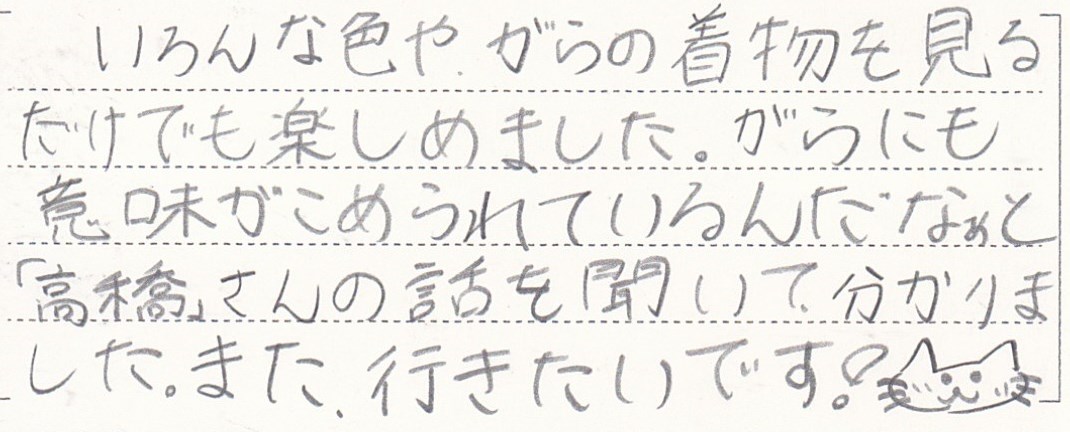 いろんな色や、がらの着物を見る
だけでも楽しめました。がらにも
意味がこめられているんだなぁと
「高橋」さんの話を聞いて、分かりま
した。また、行きたいです!